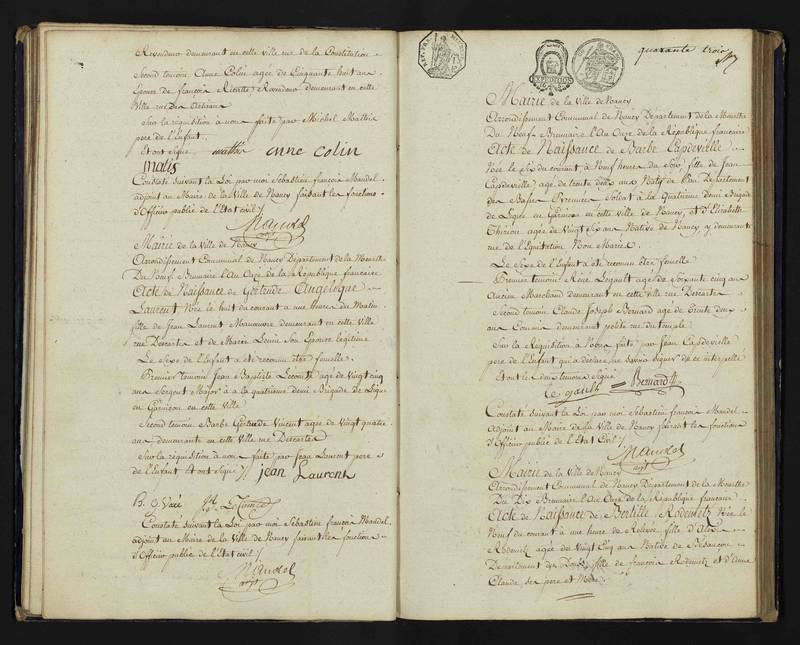 Revendeur demeurant en cette Ville rue de la Constitution
Second temoin Anne Colin agée de Cinquante huit ans
Epouse de françois Revendeur demeurant en cette
Ville rue des Artisans
Sur la réquisition à nous faite par Michel Mathis
pere de l'Enfant.
Et ont signé. mathis anne colin
matis
Constaté suivant la Loi par moi Sébastien françois Mandel
adjoint au Maire de la Ville de Nancy faisant les fonctions
d'Officier public de l'Etat civil /.
Mandel
Mairie de la Ville de Nancy
Arrondissement Communal de Nancy Département de la Meurthe
Du Neuf Brumaire l'An Onze de la République francaise
Acte de Naissance de Gertrude Angelique
Laurent Née le huit du courant a une heure du Matin
fille de Jean Laurent Manœuvre demeurant en cette Ville
rue Descartes et de Marie Son Epouse légitime
Le Sexe de l'Enfant a été reconnu être femelle.
Premier temoin Jean Baptiste Lecomte agé de Vingt cinq
ans Sergent Major à la quatrieme demi Brigade de Ligne
en Garnison en cette Ville
Second temoin Barbe Gertrude Vincent agée de Vingt quatre
ans demeurante en cette Ville rue Descartes
Sur la réquisition à nous faite par Jean Laurent pere
de l'Enfant Et ont Signé /. jean Laurent
B. g. Le Comte
Constaté suivant la Loi par moi Sébastien françois Mandel,
adjoint au Maire de la Ville de Nancy faisant les fonctions
d'Officier public de l'Etat civil /.
Mandel
adjt
quarante trois
EXPEDITION
Mairie de la Ville de Nancy
Arrondissement Communal de Nancy Département de la Meurthe
Du Neuf Brumaire l'An Onze de la République francaise
Acte de Naissance de Barbe Capdevielle
Née le Six du courant, à Neuf heures du Soir, fille de Jean
Capdevielle, agé de trente deux ans Natif de Pau Département
des Basses Pyrennées Soldat à la Quatrieme Demi Brigade
de Ligne en Garnison en cette ville de Nancy, et d'Elisabeth
Thirion agée de Vingt Six ans Native de Nancy y demeurante
rue de l'Equitation Non Mariés.
Le Sexe de l'Enfant a été reconnu être femelle
Premier temoin Réné Légault agé de Soixante cinq ans
Ancien Marchand demeurant en cette ville rue Descartes
Second temoin Claude Joseph Bernard agé de trente deux
ans Commis demeurant petite rue du temple
Sur la Réquisition à Nous faite par Jean Capdevielle
pere de l'Enfant qui a déclaré ne savoir signer de ce interpellé
Et ont les deux temoins Signé
le gault Bernard
Constaté suivant la Loi par moi Sébastien françois Mandel
adjoint au Maire de la Ville de Nancy faisant les fonctions
d'Officier public de l'Etat Civil /.
Mandel
adjt
Mairie de la Ville de Nancy
Arrondissement Communal de Nancy Département de la Meurthe
Du Dix Brumaire l'An Onze de la République francaise
Acte de Naissance de Bertille Rodemetz Née le
Neuf du courant à une heure de Relevée fille d'
Rodemetz agée de Vingt Cinq ans Native de Besancon
Département du Doubs, fille de françois Rodemetz et d'Anne
Claude ses pere et Mere.